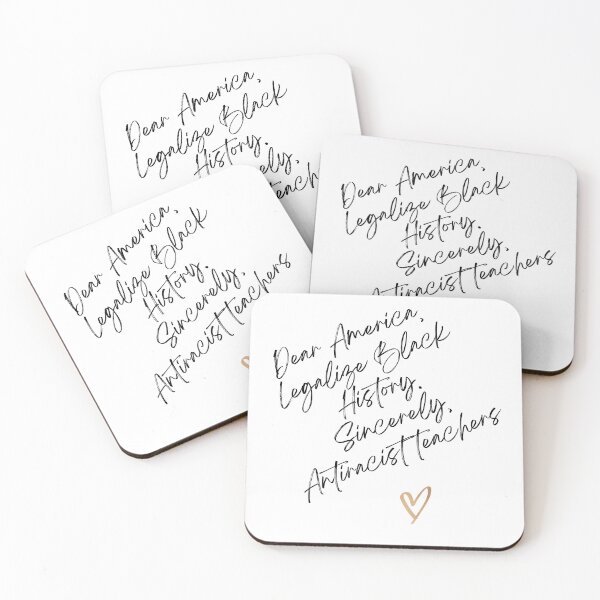 Dear America,
Legalize Black
History.
Sincerely,
teachers
Dear America,
Legalize Black
History.
Sincerely,
Antiracist teachers
Dear America,
Legalize Black
History.
Sincerely,
Antiracist teachers
Dear America,
Legalize Black
History.
Sincerely,
Antiracist teachers